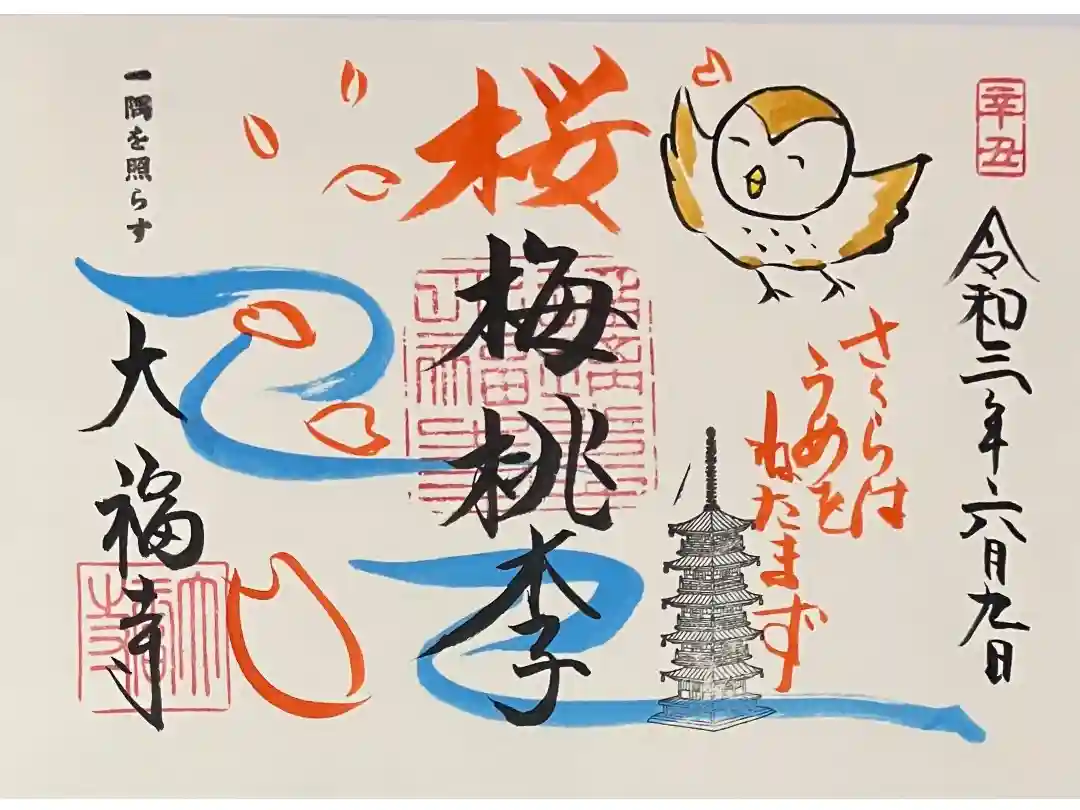 辛丑
令和三年六月九日
さくらは
うめを
ねたまず
桜
梅桃李
一隅を照らす
大福寺
大福寺